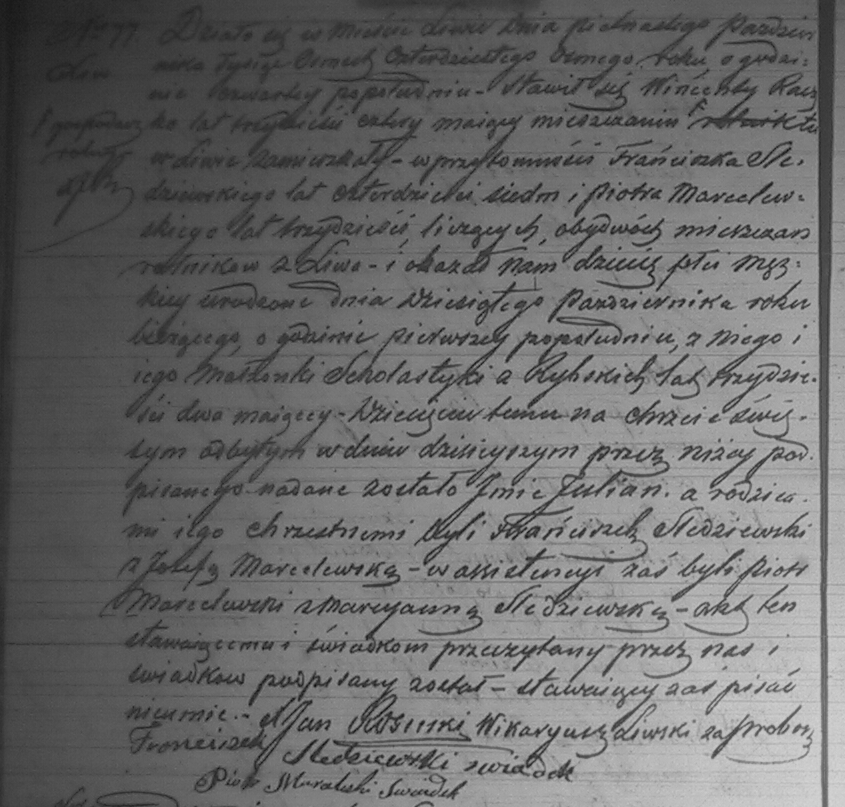 Nr 77. Działo się w Mieście Liwie Dnia piętnastego Paździer
Liw nika tysiąc Ośmset Czterdziestego Osmego roku o godzi-
nie czwartey popołudniu - Stawił się Wincenty Racz
gospodarz ko lat trzydzieści cztery maiący mieszczanin
rolny w Liwie zamieszkały - w przytomności Franciszka Śle-
dziewskiego lat czterdzieści siedm i Piotra Marcelew-
skiego lat trzydzieści liczących, obydwóch mieszczan
rolnikow z Liwa - i okazał nam dziecię płci męz-
kiey urodzone dnia dziesiątego Października roku
bieżącego, o godzinie pierwszey popołudniu, z niego i
iego Małżonki Scholastyki z Rybskich lat trzydzie-
ści dwa maiącey - Dziecięciu temu na chrzcie świę-
tym odbytym w dniu dzisieyszym przez niżey pod-
pisanego nadane zostało Imie Julian. a rodzica-
mi iego chrzestnemi byli Franciszek Śledziewski
z Józefą Marcelewską - w assistencyi zaś byli Piotr
Marcelewski z Maryanną Śledziewską - akt ten
stawaiącemu i świadkom przeczytany przez nas i
świadkow podpisany został - stawaiący zaś pisać
nieumie. - X Jan Wikaryusz Liwski za Probosz
Franciszek
Śledziewski swiadek
Piotr Swiadek